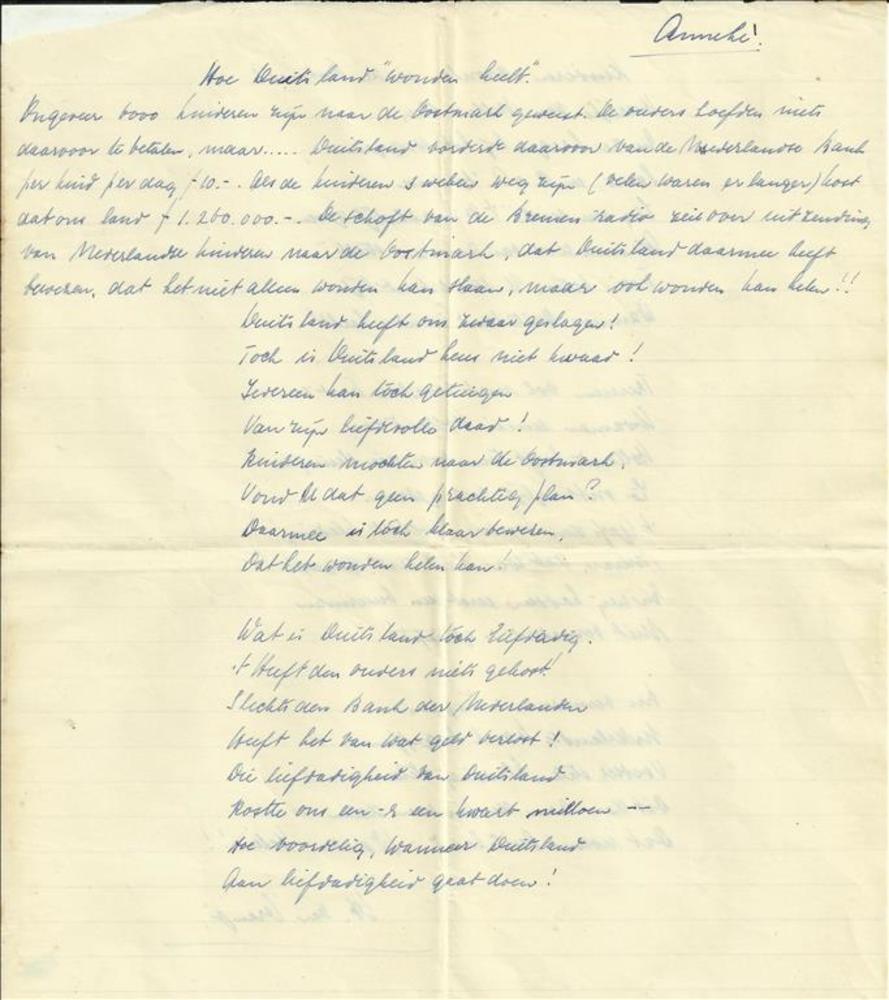 Anneke!
Hoe Duitsland "wonden heelt".
Ongeveer 6000 kinderen zijn naar de Oostmark geweest. De ouders hoefden niets
daarvoor te betalen, maar..... Duitsland vorderde daarvoor van de Nederlandse Bank
per kind per dag f 10.-. Als de kinderen 3 weken weg zijn (velen waren er langer) kost
dat ons land f 1.260.000.-. De schoft van de Bremen radio zei over uitzending
van Nederlandse kinderen naar de Oostmark, dat Duitsland daarmee heeft
bewezen, dat het niet alleen wonden kan slaan, maar ook wonden kan helen!!
Duitsland heeft ons zwaar geslagen!
Toch is Duitsland heus niet kwaad!
Iedereen kan toch getuigen
Van zijn liefdevolle daad!
Kinderen mochten naar de Oostmark,
Vond U dat geen prachtig plan?
Daarmee is toch klaar bewezen,
Dat het wonden helen kan!
Wat is Duitsland toch liefdadig.
't Heeft den ouders niets gekost!
Slechts den Bank der Nederlanden
Heeft het van wat geld verlost!
Die liefdadigheid van Duitsland
Kostte ons een-en een kwart millioen --
Hoe voordelig, wanneer Duitsland
Aan liefdadigheid gaat doen!